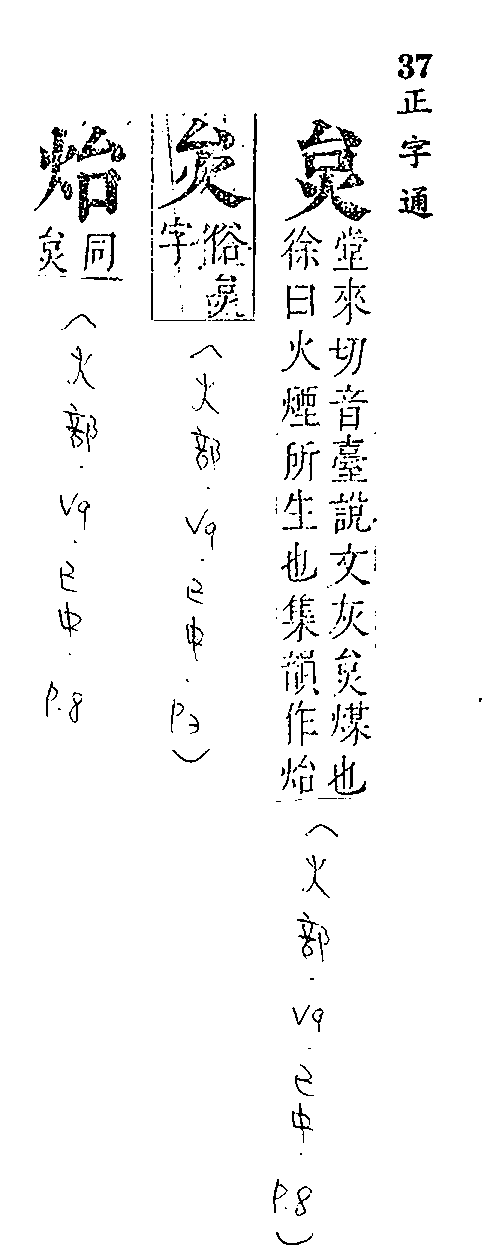 37正字通
炱
堂來切音臺說文灰炱煤也
徐曰火煙所生也集韻作炲
(火部.V9.巳中.P.8)
俗炱
字
(火部.V9.巳中.P3)
炲
同
炱
(火部.V9.巳中.P.8